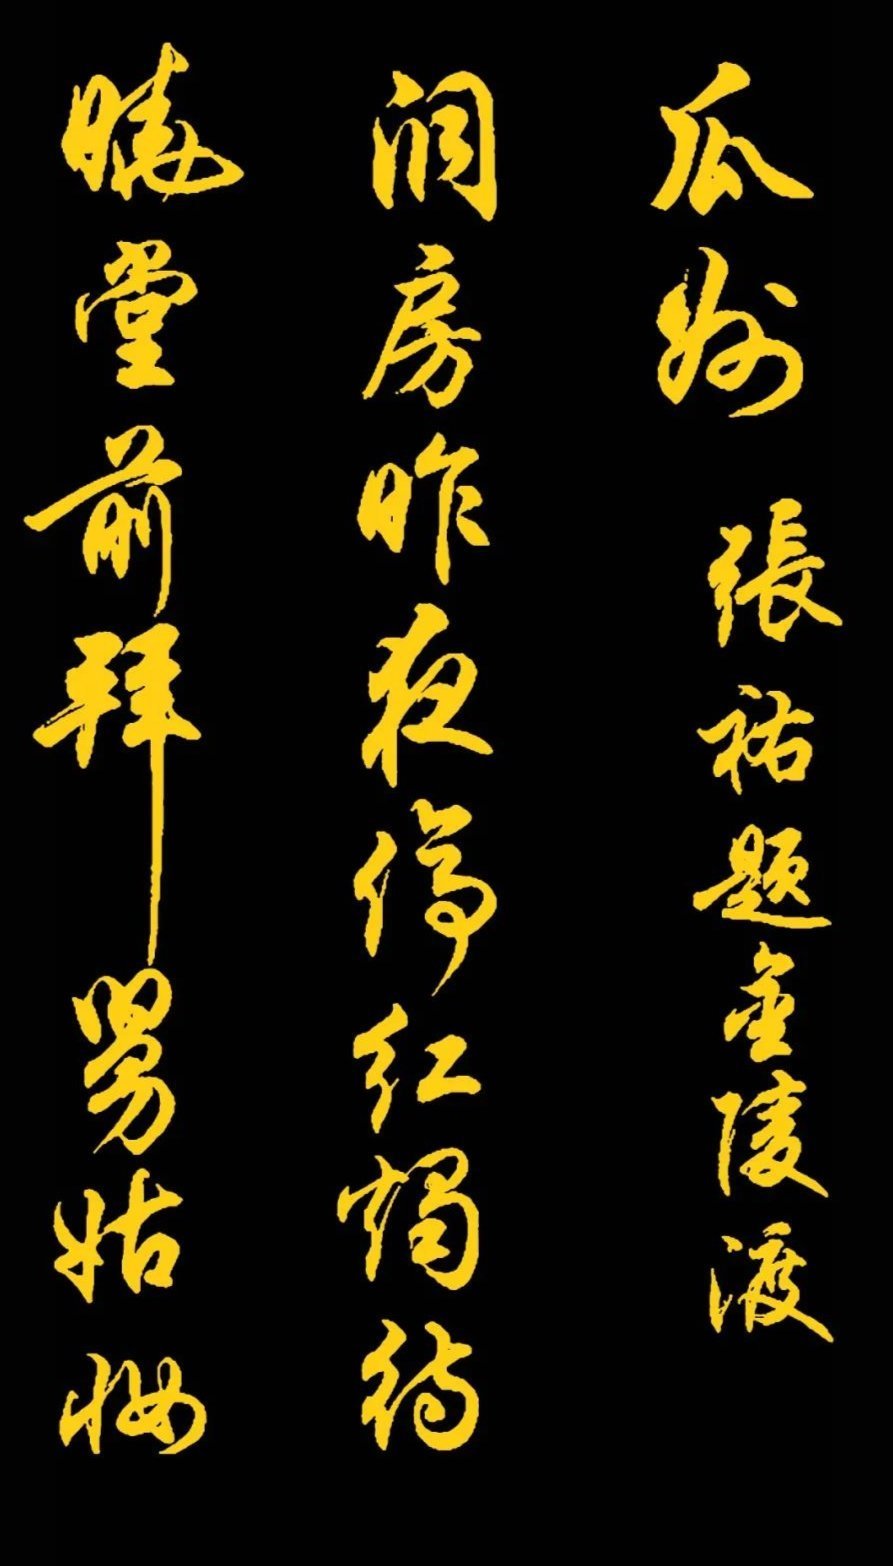 瓜州 張祜題金陵渡
洞房昨夜停红燭待
曉堂前拜舅姑妝